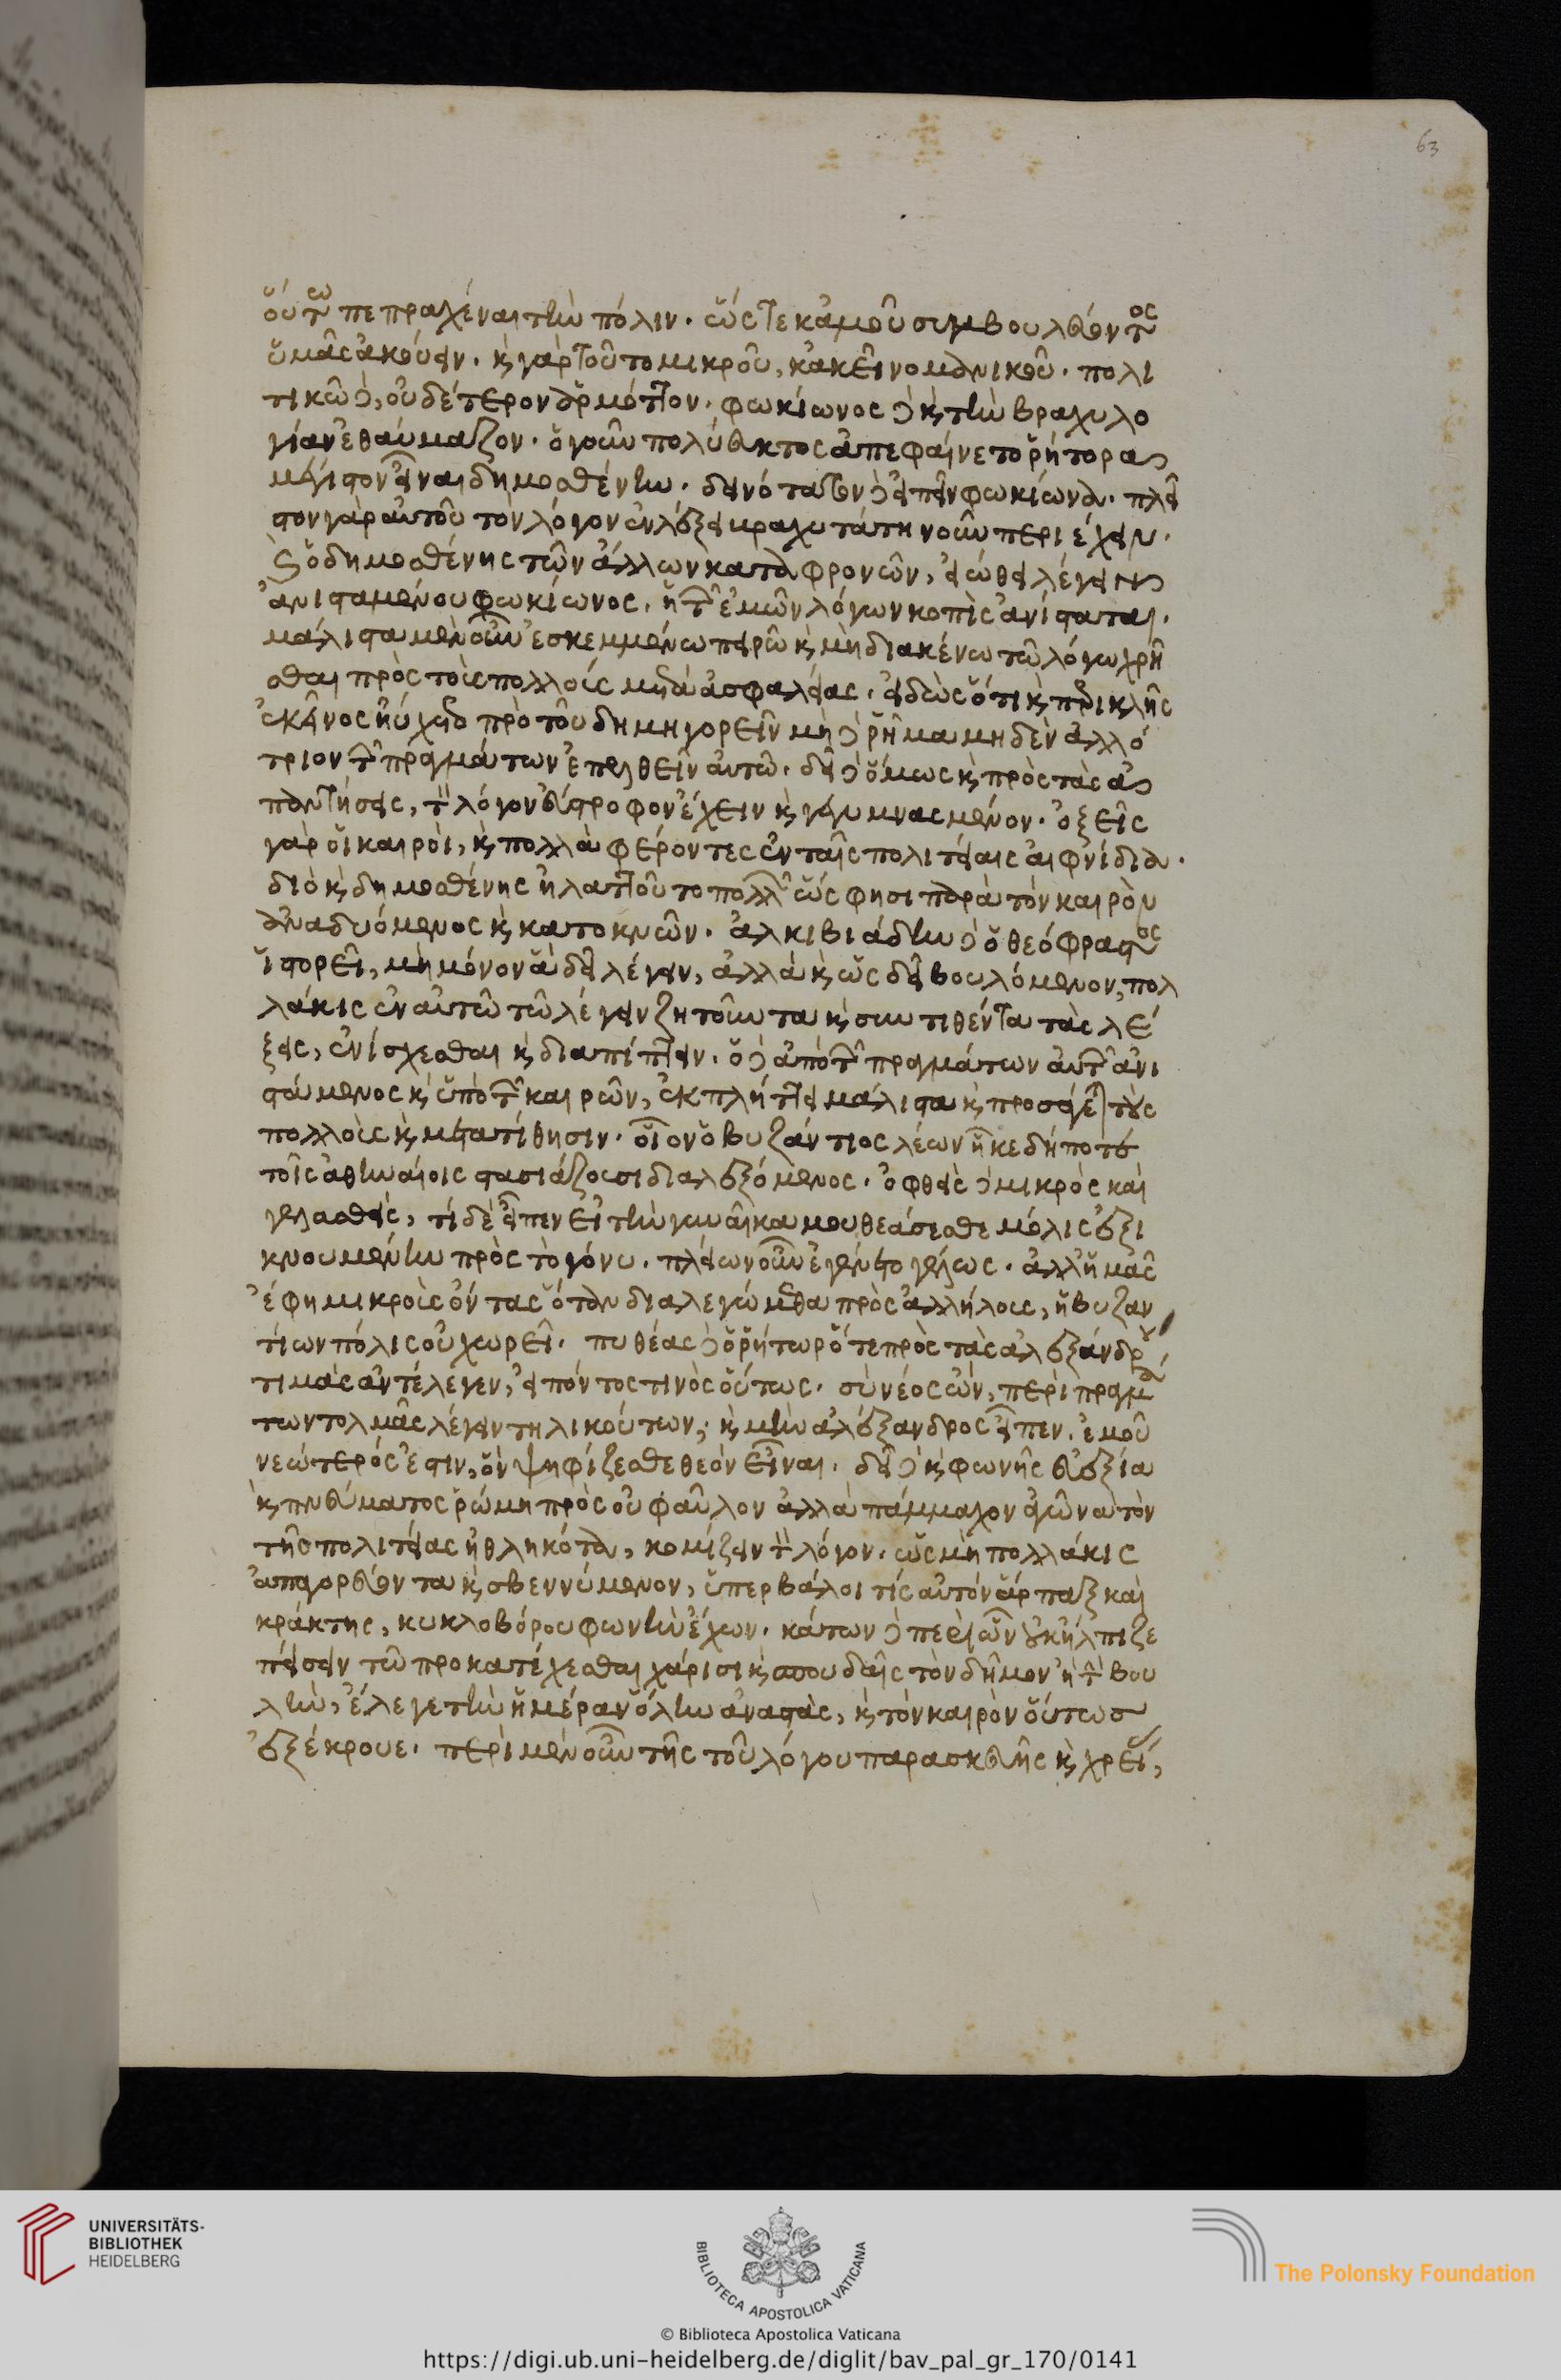 63
οὕτω πεπραχέναι τὴν πόλιν. ὥστε κἀμοῦ συμβουλεύοντος
ὑμᾶς ἀκούειν. καὶ γὰρ τοῦτο μικροῦ, κἀκεῖνο μανικοῦ. πολι
τικῶ δὲ, οὐδέτερον ἁρμόττον. φωκίωνος δὲ καὶ τὴν βραχυλο
γίαν ἐθαύμαζον. ὁ γοῦν πολύευκτος ἀπεφαίνετο ῥήτορα
μέγιστον εἶναι δημοσθένην. δεινότατον δὲ εἰπεῖν φωκίωνα. πλεῖ
στον γὰρ αὐτοῦ τὸν λόγον ἐν λέξει βραχυτάτη νοῦν περιέχειν.
καὶ ὁ δημοσθένης τῶν ἄλλων καταφρονῶν, εἰώθει λέγειν
ἀνισταμένου φωκίωνος, ἡ τῶν ἐμῶν λόγων κοπὶς ἀνίσταται.
μάλιστα μὲν οὖν ἐσκεμμένω πειρῶ καὶ μὴ διακένω τῶ λόγω χρῆ
σθαι πρὸς τοὺς πολλοὺς μετὰ ἀσφαλείας. εἰδὼς ὅτι καὶ περικλῆς
ἐκεῖνος ηὔχετο πρὸ τοῦ δημηγορεῖν μὴ δὲ ῥῆμα μηδὲν ἀλλό
τριον τῶν πραγμάτων ἐπελθεῖν αὐτῶ. δεῖ δὲ ὅμως καὶ πρὸς τὰς ἀ
παντήσεις, τὸν λόγον εὔστροφον ἔχειν καὶ γεγυμνασμένον. ὀξεῖς
γὰρ οἱ καιροὶ, καὶ πολλὰ φέροντες ἐν ταῖς πολιτείαις αἰφνίδια.
διὸ καὶ δημοσθένης ἠλαττοῦτο πολλῶν ὥς φησι παρὰ τὸν καιρὸν
ἀναδυόμενος καὶ κατοκνῶν. ἀλκιβιάδην δὲ ὁ θεόφραστος
ἱστορεῖ, μὴ μόνον ἃ δεῖ λέγειν, ἀλλὰ καὶ ὡς δεῖ βουλόμενον, πολ
λάκις ἐν αὐτῶ τῶ λέγειν ζητοῦντα καὶ συντιθέντα τὰς λέ
ξεις, ἐνίσχεσθαι καὶ διαπίπτειν. ὁ δὲ ἀπὸ τῶν πραγμάτων αὐτῶν ἀνι
στάμενος καὶ ὑπὸ τῶν καιρῶν, ἐκπλήττει μάλιστα καὶ προσάγεται τοὺς
πολλοὺς καὶ μετατίθησιν. οἷον ὁ βυζάντιος λέων ἧκε δήποτε
τοῖς ἀθηναίοις στασιάζουσι διαλεξόμενος. ὀφθεὶς δὲ μικρὸς καὶ
γελασθεὶς, τί δὲ εἶπεν εἰ τὴν γυναῖκα μου θεάσεσθε μόλις ἐξι
κνουμένην πρὸς τὸ γόνυ. πλείων οὖν ἐγένετο γέλως. ἀλλ' ἡμᾶς
ἔφη μικροὺς ὄντας ὅταν διαλεγώμεθα πρὸς ἀλλήλους, ἡ βυζαν
τίων πόλις οὐ χωρεῖ. πυθέας δὲ ὁ ῥήτωρ ὅτε πρὸς τὰς ἀλεξάνδρου
τιμὰς ἀντέλεγεν, εἰπόντος τινὸς οὕτως. σὺ νέος ὢν, περὶ πραγμά
των τολμᾶς λέγειν τηλικούτων; καὶ μὴν ἀλέξανδρος εἶπεν. ἐμοῦ
νεώτερός ἐστιν, ὃν ψηφίζεσθε θεὸν εἶναι. δεῖ δὲ καὶ φωνῆς εὐεξία
καὶ πνεύματος ῥώμη πρὸς οὐ φαῦλον ἀλλὰ πάμμαχον ἀγῶνα τὸν
τῆς πολιτείας ἠθληκότα, κομίζειν τὸν λόγον. ὡς μὴ πολλάκις
ἀπαγορεύοντα καὶ σβεννύμενον, ὑπερβάλοι τίς αὐτὸν ἅρπαξ καὶ
κράκτης, κυκλοβόρου φωνὴν ἔχων. κάτων δὲ περὶ ὧν οὐκ ἤλπιζε
πείσειν τῶ προκατέχεσθαι χάρισι καὶ σπουδαῖς τὸν δῆμον ἢ τὴν βου
λὴν, ἔλεγε τὴν ἡμέραν ὅλην ἀναστὰς, καὶ τὸν καιρὸν οὕτως
ἐξέκρουε. περὶ μὲν οὖν τῆς τοῦ λόγου παρασκευῆς καὶ χρείας,
UNIVERSITÄTS-
BIBLIOTHEK
HEIDELBERG
BIBLIOTECA APOSTOLICA VATICANA
The Polonsky Foundation
© Biblioteca Apostolica Vaticana
https://digi.ub.uni-heidelberg.de/diglit/bav_pal_gr_170/0141